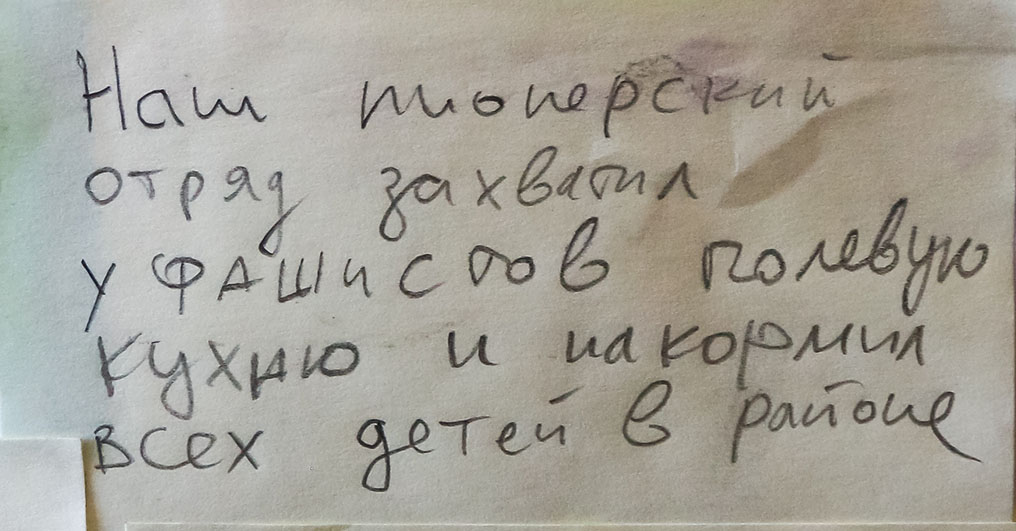 Наш пионерский
отряд захватил
у фашистов полевую
кухню и накормил
всех детей в районе